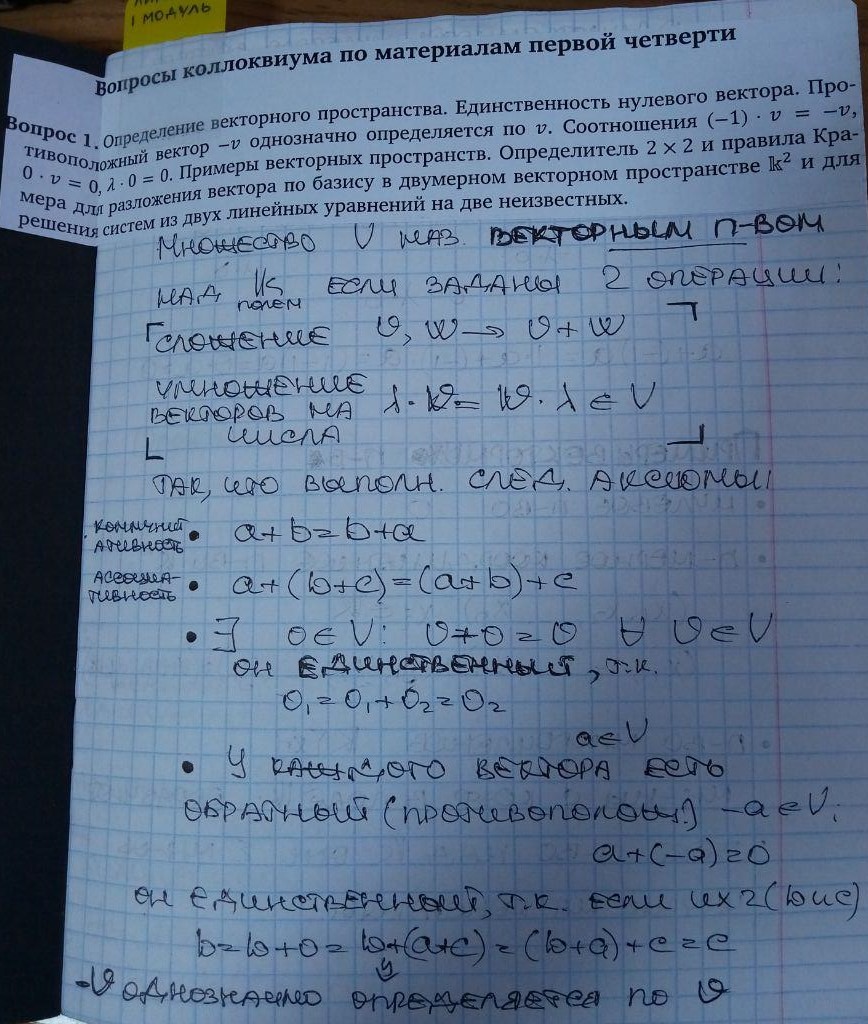 1 МОДУЛЬ
Вопросы коллоквиума по материалам первой четверти
Вопрос 1. Определение векторного пространства. Единственность нулевого вектора. Про-
тивоположный вектор −v однозначно определяется по v. Соотношения (−1) · v = −v,
0 · v = 0, λ · 0 = 0. Примеры векторных пространств. Определитель 2 × 2 и правила Кра-
мера для разложения вектора по базису в двумерном векторном пространстве 𝕜² и для
решения систем из двух линейных уравнений на две неизвестных.
Множество V наз. ВЕКТОРНЫМ П-ВОМ
над 𝕜 если заданы 2 операции:
полем
сложение v, w → v + w
умножение
векторов на λ · v = v · λ ∈ V
числа
так, что выполн. след. аксиомы
коммунит
ативность • a+b=b+a
ассоциа-
тивность • a+(b+c)=(a+b)+c
• ∃ 0∈V: v+0=v ∀ v∈V
он единственный, т.к.
0₁=0₁+0₂=0₂
a∈V
• У каждого вектора есть
обратный (противополож) -a∈V:
a+(-a)=0
он единственный, т.к. если их 2 (b и c)
b=b+0=b+(a+c)=(b+a)+c=c
-v однозначно определяется по v